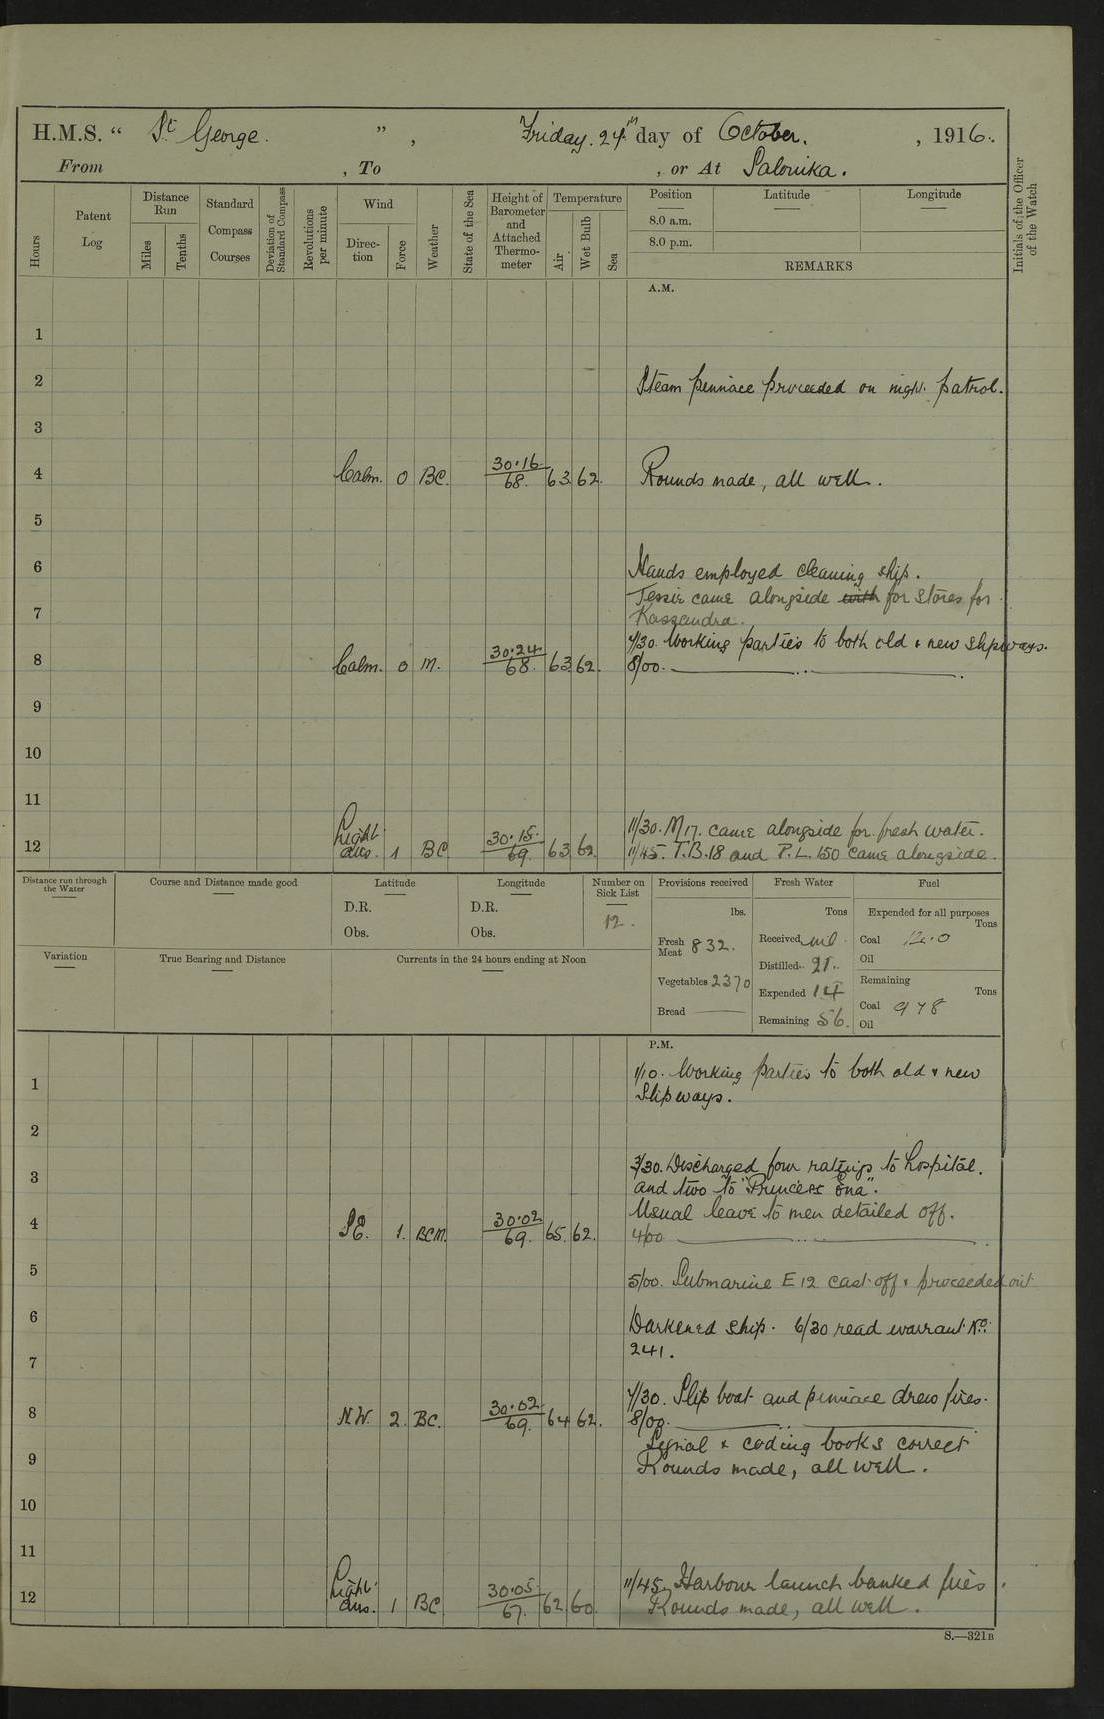 H.M.S. “ St George. ” , Friday. 24th day of October. , 1916.
From , To , or At Salonika.
Hours
Patent Log
Distance Run
Miles
Tenths
Standard Compass Courses
Deviation of Standard Compass
Revolutions per minute
Wind
Direc-tion
Force
Weather
State of the Sea
Height of Barometer and Attached Thermo-meter
Temperature
Air
Wet Bulb
Sea
Position
Latitude
Longitude
8.0 a.m.
8.0 p.m.
REMARKS
Initials of the Officer of the Watch
A.M.
1
2 Steam pinnace proceeded on night patrol.
3
4 Calm. 0 BC. 30·16 68. 63. 62. Rounds made, all well.
5
6 Hands employed cleaning ship.
Tessie came alongside with for stores for
7 Kassandra.
7/30. Working parties to both old & new slipways.
8 Calm. 0 M. 30·24 68. 63. 62. 8/00.
9
10
11
11/30. M17. came alongside for fresh water.
12 Light airs. 1 BC 30·15. 69. 63 62. 11/45. T.B.18 and P.L. 150 came alongside.
Distance run through the Water
Course and Distance made good
Latitude
D.R.
Obs.
Longitude
D.R.
Obs.
Number on Sick List
12.
Provisions received
lbs.
Fresh Meat 832.
Vegetables 2370
Bread
Fresh Water
Tons
Received nil.
Distilled 21.
Expended 14
Remaining 56.
Fuel
Expended for all purposes
Tons
Coal 12.0
Oil
Remaining
Tons
Coal 978
Oil
Variation
True Bearing and Distance
Currents in the 24 hours ending at Noon
P.M.
1 1/10. Working parties to both old & new
Slipways.
2
3 3/30. Discharged four ratings to hospital.
and two to "Princess Ena".
Usual leave to men detailed off.
4 SE. 1. BCM. 30·02 69. 65. 62. 4/00
5 5/00. Submarine E 12 cast off & proceeded out
6 Darkened ship. 6/30 read warrant No.
7 241.
7/30. Slip boat and pinnace drew fires.
8 N.W. 2. BC. 30·02 69. 64 62. 8/00.
Signal & coding books correct
9 Rounds made, all well.
10
11
11/45. Harbour launch banked fires.
12 Light airs. 1 BC 30·05 67. 62. 60. Rounds made, all well.
S.—321B